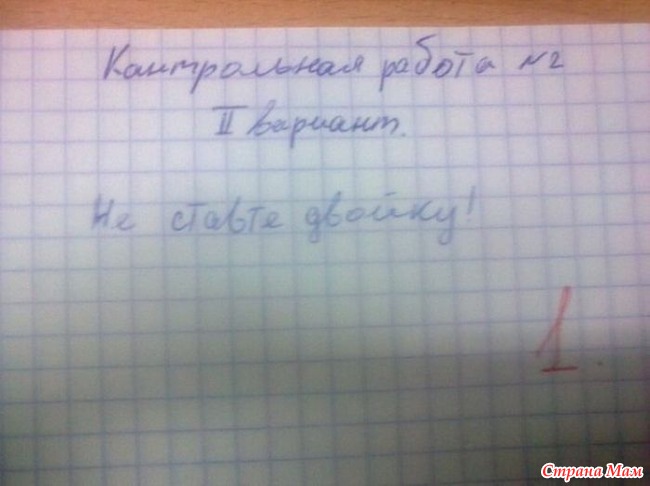 Кантрольная работа №2
II вариант.
Не ставте двойку!
1.
Страна Мам